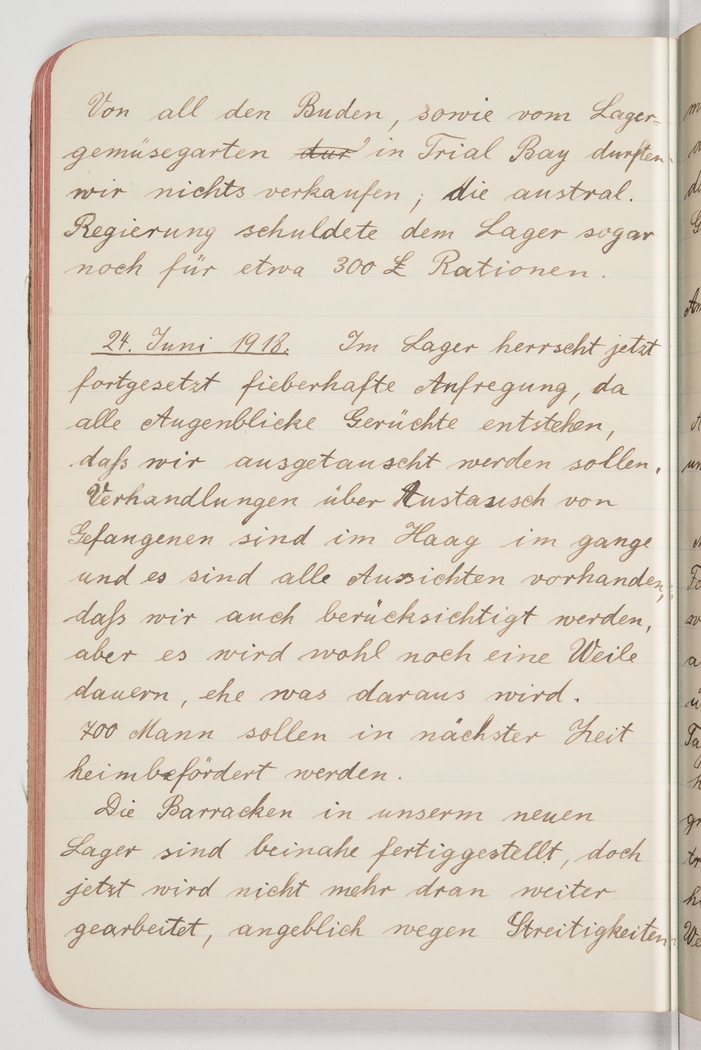 Von all den Buden, sowie vom Lager=
gemüsegarten dur in Trial Bay durften
wir nichts verkaufen; die austral.
Regierung schuldete dem Lager sogar
noch für etwa 300 £ Rationen.
24. Juni 1918. Im Lager herrscht jetzt
fortgesetzt fieberhafte Aufregung, da
alle Augenblicke Gerüchte entstehen,
daß wir ausgetauscht werden sollen.
Verhandlungen über Austausch von
Gefangenen sind im Haag im gange
und es sind alle Aussichten vorhanden,
daß wir auch berücksichtigt werden,
aber es wird wohl noch eine Weile
dauern, ehe was daraus wird.
700 Mann sollen in nächster Zeit
heimbefördert werden.
Die Barracken in unserm neuen
Lager sind beinahe fertiggestellt, doch
jetzt wird nicht mehr dran weiter
gearbeitet, angeblich wegen Streitigkeiten